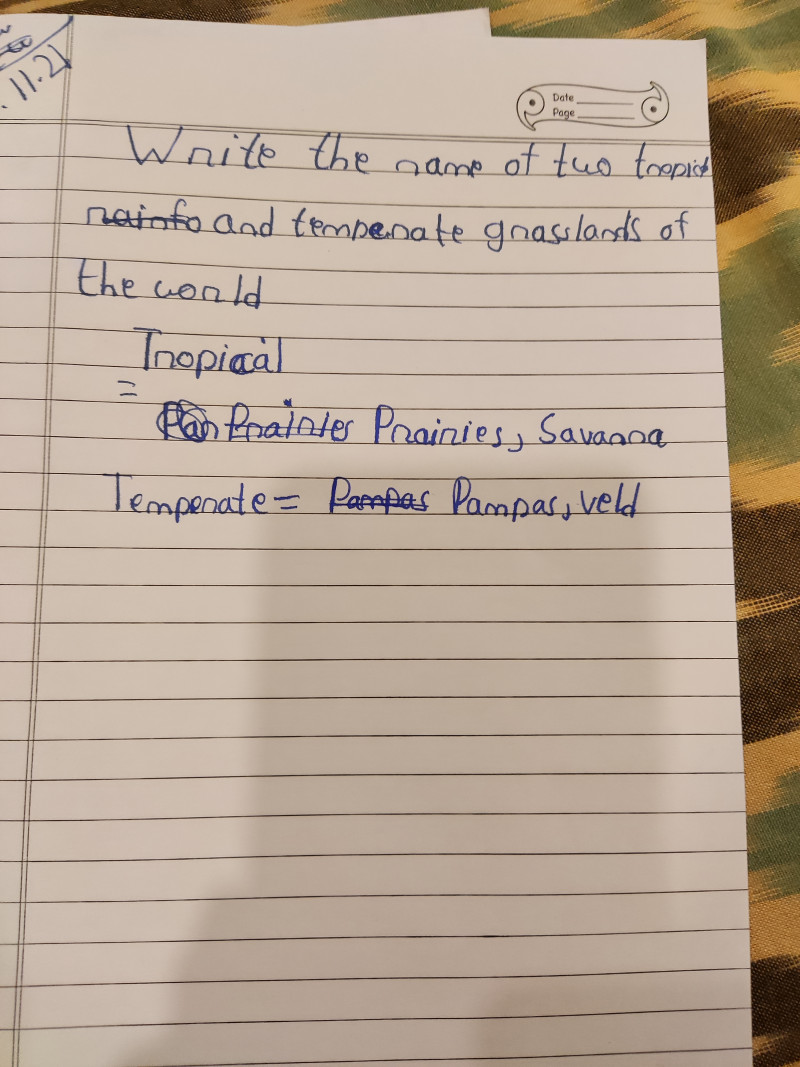 11.21
Date
Page
Write the name of two tropical
rainfo and temperate grasslands of
the world
Tropical
=
Prairies Prairies, Savanna
Temperate = Pampas Pampas, veld